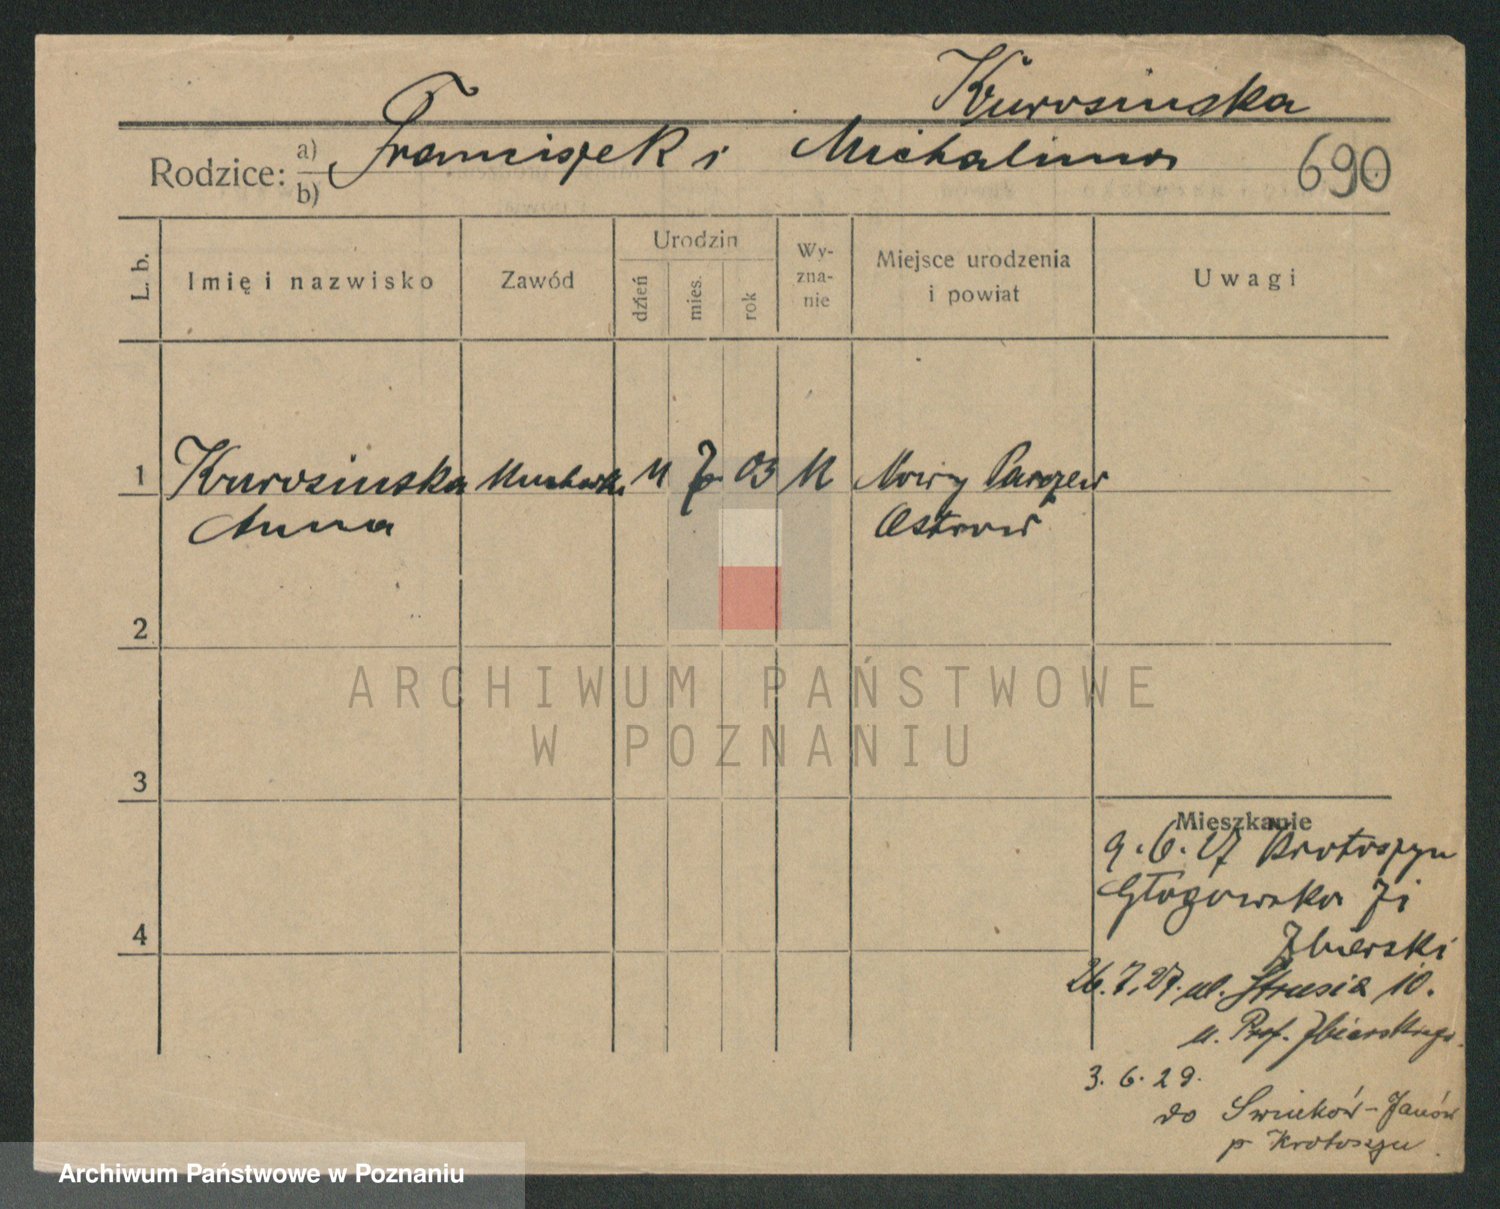 Kurosinska
Rodzice: a) b) Franciszek i Michalina
690
L. b.
Imię i nazwisko
Zawód
Urodzin
dzień
mies.
rok
Wy-
zna-
nie
Miejsce urodzenia
i powiat
Uwagi
1
Kurosinska
Anna
7 03
Nowy Parczew
Ostrow
2
3
4
ARCHIWUM PAŃSTWOWE
W POZNANIU
Mieszkanie
9.6.27 Krotoszyn
Głogowska
Zbierski
26.7.27. ul. Strusia 10.
u. Prof. Zbierskiego.
3.6.29.
do Swinków-Janów
p Krotoszyn.
Archiwum Państwowe w Poznaniu